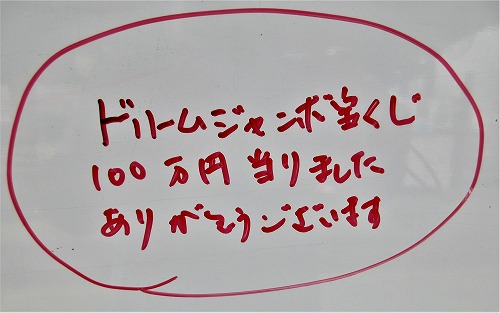 ドリームジャンボ宝くじ
100万円当りました
ありがとうございます